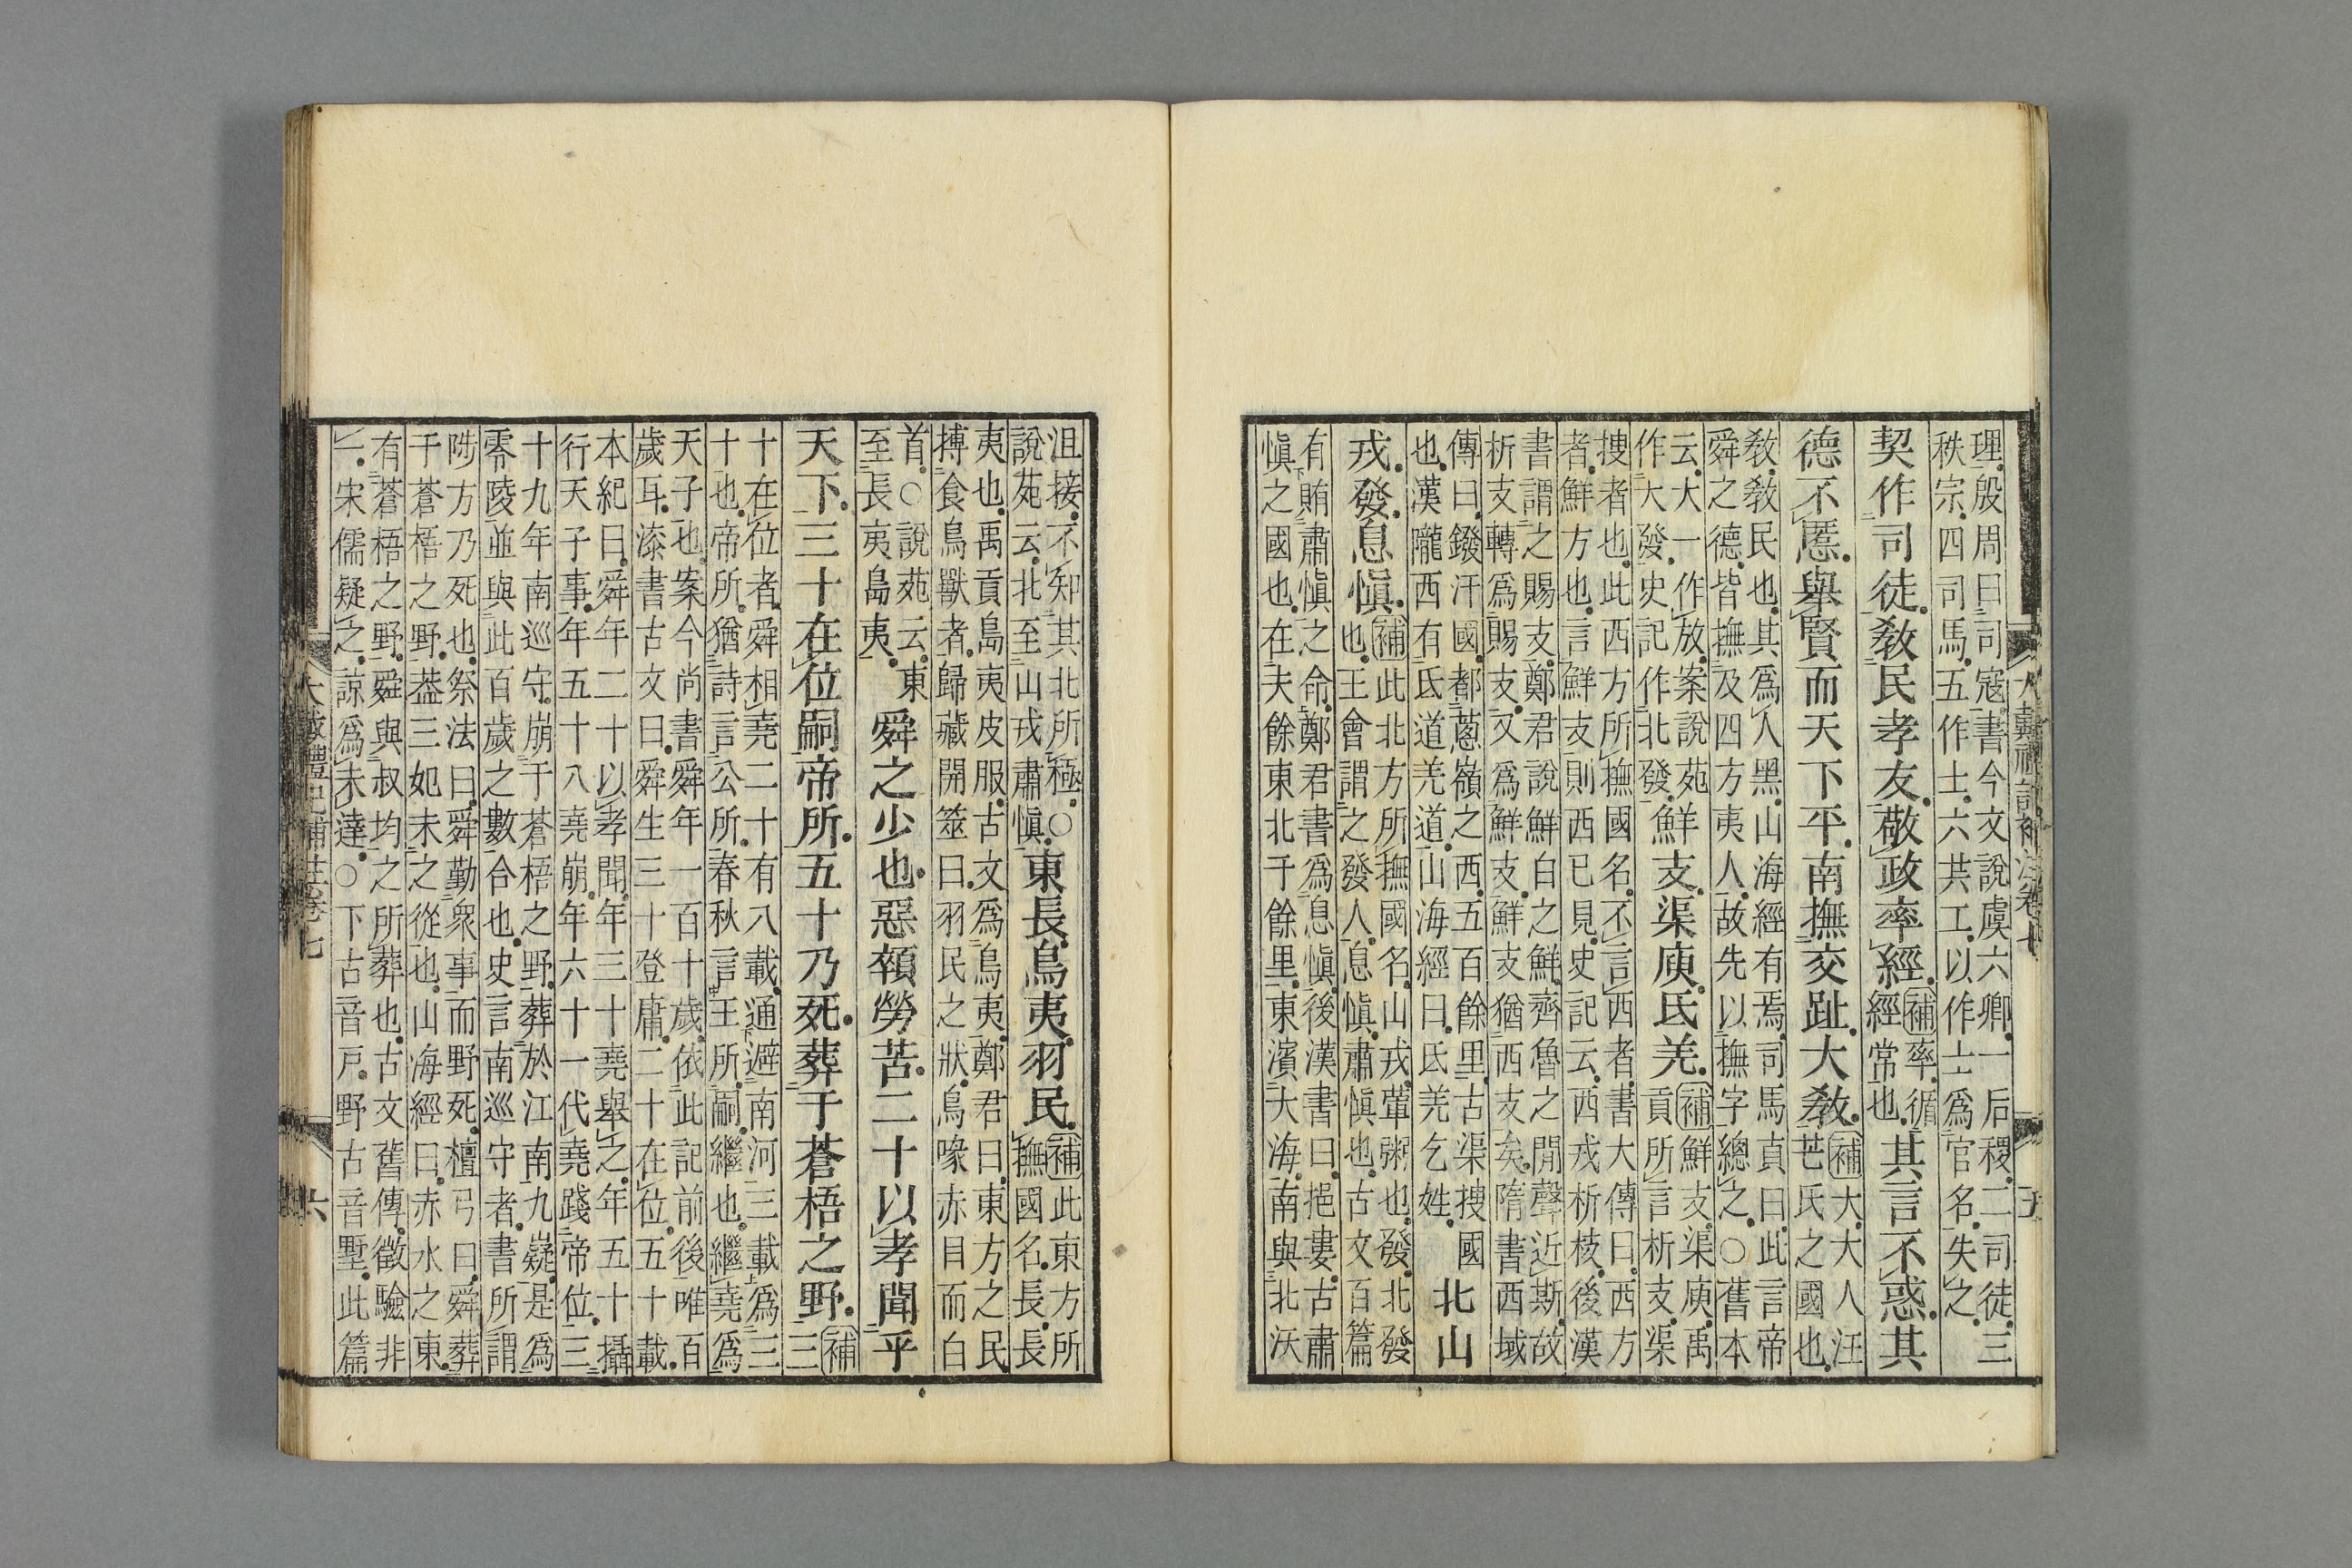 理殷周曰司寇書今文說虞六卿一后稷二司徒三
秩宗四司馬五作士六共工以作士爲官名失之
契作司徒敎民孝友敬政率經補率循經常也其言不惑其
德不慝舉賢而天下平南撫交趾大敎補大大人汪芒氏之國也
敎敎民也其爲人黑山海經有焉司馬貞曰此言帝
舜之德皆撫及四方夷人故先以撫字總之○舊本
云大一作放案說苑作大發史記作北發鮮支渠庾氐羌補鮮支渠庾禹貢所言析支渠
搜者也此西方所撫國名不言西者書大傳曰西方
者鮮方也言鮮支則西已見史記云西戎析枝後漢
書謂之賜支鄭君說鮮白之鮮齊魯之閒聲近斯故
析支轉爲賜支又爲鮮支鮮支猶西支矣隋書西域
傳曰鏺汗國都蔥嶺之西五百餘里古渠搜國
也漢隴西有氐道羌道山海經曰氐羌乞姓北山
戎發息愼補此北方所撫國名山戎葷粥也發北發
也王會謂之發人息愼肅愼也古文百篇
有賄肅愼之命鄭君書爲息愼後漢書曰挹婁古肅
愼之國也在夫餘東北千餘里東濱大海南與北沃
大戴禮記補注卷七
五
沮接不知其北所極○說苑云北至山戎肅愼東長鳥夷羽民補此東方所撫國名長長
夷也禹貢島夷皮服古文爲鳥夷鄭君曰東方之民
搏食鳥獸者歸藏開筮曰羽民之狀鳥喙赤目而白
首○說苑云東至長夷島夷舜之少也惡頛勞苦二十以孝聞乎
天下三十在位嗣帝所五十乃死葬于蒼梧之野補三
十在位者舜相堯二十有八載通避南河三載爲三
十也帝所猶詩言公所春秋言王所嗣繼也繼堯爲
天子也案今尚書舜年一百十歲依此記前後唯百
歲耳漆書古文曰舜生三十登庸二十在位五十載
本紀曰舜年二十以孝聞年三十堯舉之年五十攝
行天子事年五十八堯崩年六十一代堯踐帝位三
十九年南巡守崩于蒼梧之野葬於江南九嶷是爲
零陵並與此百歲之數合也史言南巡守者書所謂
陟方乃死也祭法曰舜勤衆事而野死檀弓曰舜葬
于蒼梧之野葢三妃未之從也山海經曰赤水之東
有蒼梧之野舜與叔均之所葬也古文舊傳徵驗非
一宋儒疑之諒爲未達○下古音戸野古音墅此篇
大戴禮記補注卷七
六